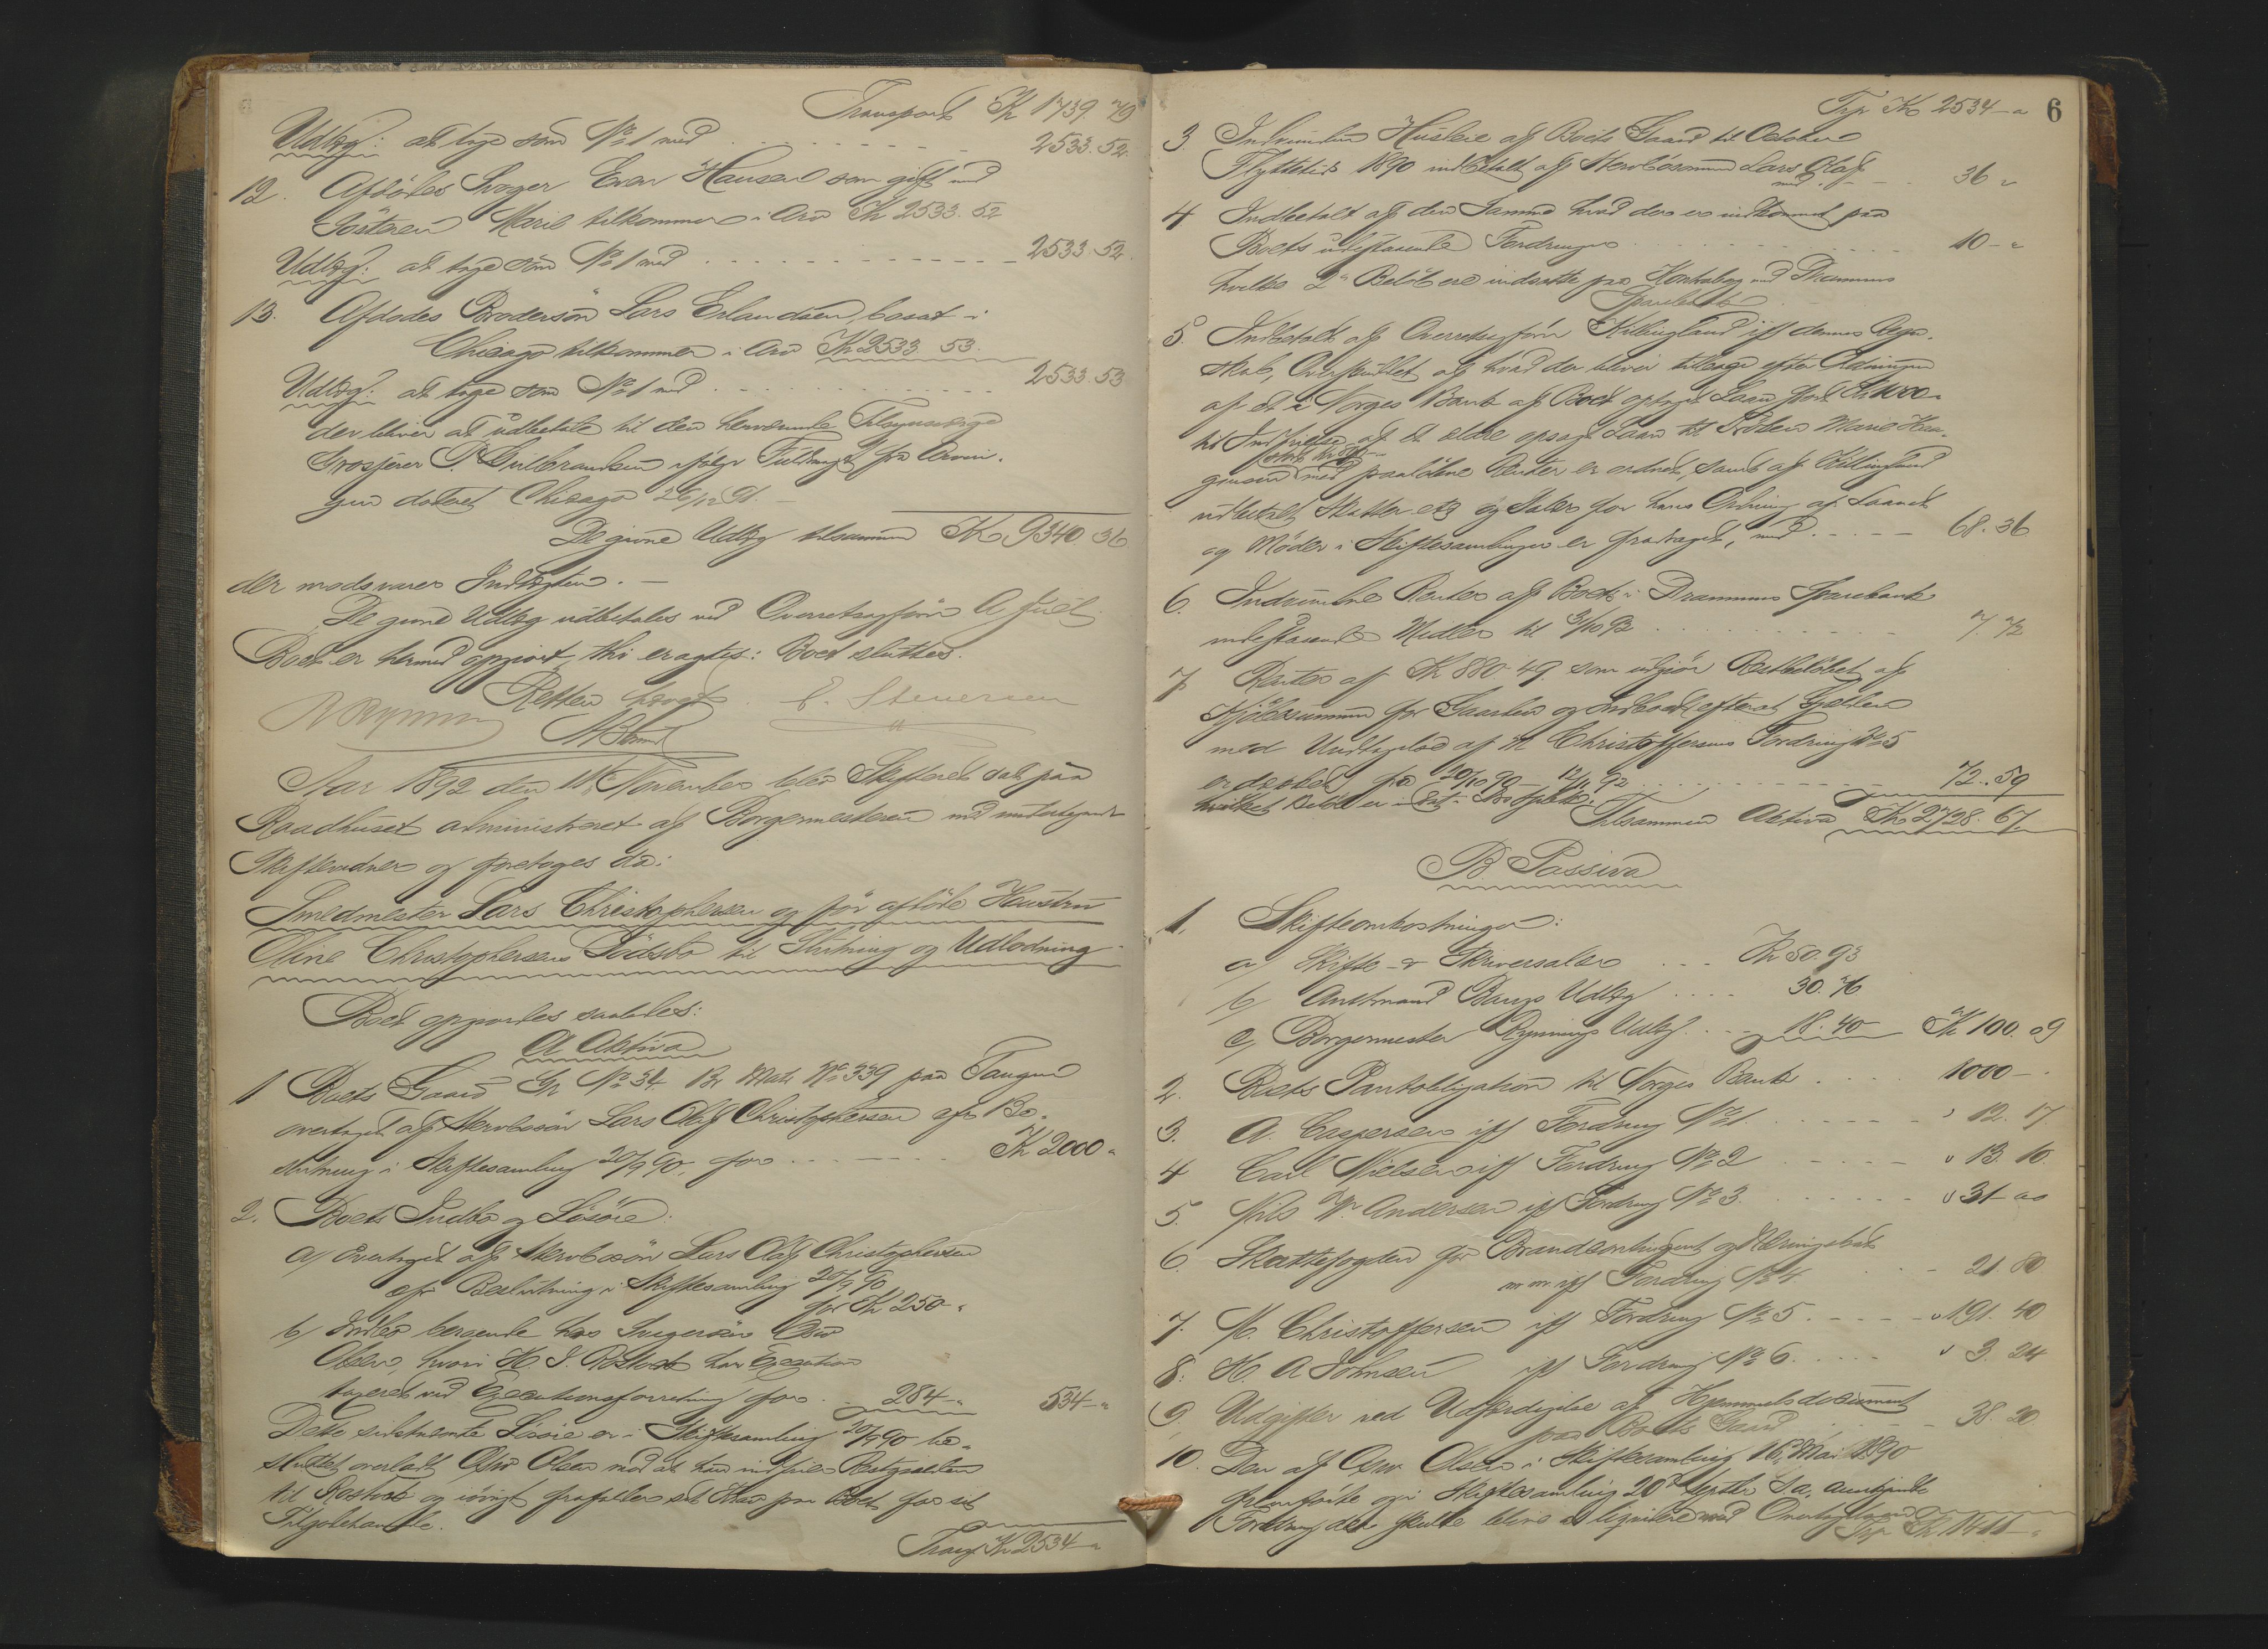 Transport Kr 1739.79
Udlæg: at tage som No 1 med 2533.52.
12. Afdødes Svoger Even Hansen som gift med
Søsteren Marie tilkommer i Arv Kr 2533.52
Udlæg: at tage som No 1 med 2533.52.
13. Afdødes Brodersøn Lars Erlandsen, bosat i
Chicago tilkommer i Arv Kr 2533.53.
Udlæg: at tage som No 1 med 2533.53
der bliver at udbetale til den herværende
Grosserer P. Gulbrandsen ifølge Fuldmagt fra Arvin-
gen dateret Chicago 26/12 91.
De givne Udlæg tilsammen Kr 9340.36
der modsvarer Indtægten.
De givne Udlæg udbetales ved Overretssagfører A Juel
Boet er hermed opgjort, thi eragtes: Boet sluttes.
Retten hævet.
Aar 1892 den 11 November blev Skifteret sat paa
Raadhuset administreret af Borgermesteren med undertegnede
Skiftevidner og foretoges da:
Smedmester Lars Christophersen og før afdøde Hustru
Oline Christophersens Dødsbo til Slutning og Udlodning
Boet opgjordes saaledes:
A Aktiva
1 Boets Gaard Gr No 34 Br Matr No 339 paa Tangen
overtaget af Stervbosøn Lars Olaf Christophersen efter Be-
slutning i Skiftesamling 20/9 90, for Kr 2000 "
2. Boets Indbo og Løsøre:
a) Overtaget af Stervbosøn Lars Olaf Christophersen
efter Beslutning i Skiftesamling 20/9 90
for Kr 250 "
b) Indbo beroende hos Svigersøn
Olsen, hvori H. J. har Execution
taxeret ved Executionsforretning for 284 " 534 "
Dette sidstnævnte Løsøre er i Skiftesamling 20/9 90 be-
sluttet overladt Olsen mod at han indfrier Restgjælden
til og iøvrigt frafalder sit Krav paa Boet for sit
Tilgodehavende.
Transp. Kr 2534 "
6
Trsp Kr 2534 "
3. Indvunden Husleie af Boets Gaard til October
Flyttetid 1890 indbetalt af Stervbosønnen Lars Olaf
med 36 "
4 Indbetalt af den Samme hvad der er indkommet paa
Boets udestaaende Fordringer 10 "
hvilke 2de Beløb ere indsatte paa Kontrabog med Drammens
Sparebank
5. Indbetalt af Overretssagfører Killingland ifl dennes Regn-
skab, Overskuddet af hvad der bliver tilbage efter Ordningen
af et i Norges Bank af Boet optaget Laan stort Kr 1000 "
til Indfrielse af et ældre opsagt Laan til Frøken Marie Haa-
gensen med paaløbne Renter er ordnet, samt af Killingland
udbetalt Skatter etc og Salær for hans Ordning af Laanet
og Møder i Skiftesamlinger er fradraget, med 68.36
6. Indvundne Renter af Boets i Drammens Sparebank
indestaaende Midler til 3/10 92 7.72
7. Renter af Kr 880.49 som udgjør Restbeløbet af
Kjøbesummen for Gaarden og Indboet efterat Gjælden
med Undtagelse af M Christoffersens Fordring No 5
er dækket fra 20/10 90 - 12/11 92 72.59
Tilsammen Aktiva Kr 2728.67.
B Passiva
1. Skifteomkostninger:
a) Skifte- & Skriversalær Kr 50.93
b) Amtmand Bangs Udlæg 30.76
c) Borgermester Rynnings Udlæg 18.40 Kr 100.09
2. Boets Pantobligation til Norges Bank 1000 -
3. A. Caspersen ifl Fordring No 1 " 12.17.
4 Carl Nielsen ifl Fordring No 2 " 13.10.
5. Nils W. Andersen ifl Fordring No 3 " 31 00
6. Skattefogden for Brandcontingent og Næringsskat
m m. ifl Fordring No 4 21.80
7. M. Christoffersen ifl Fordring No 5. " 191.40
8. H. A Johnsen ifl Fordring No 6. " 3.24
9. Udgifter ved Udfærdigelse af Hjemmelsdocument
paa Boets Gaard 38.20.
10. Den af Olsen i Skiftesamling 16 Mai 1890
fremførte og i Skiftesamling 20de Septbr s.a. anerkjendte
Fordring der skulde blive at ligvidere mod
Trsp Kr 1411 "